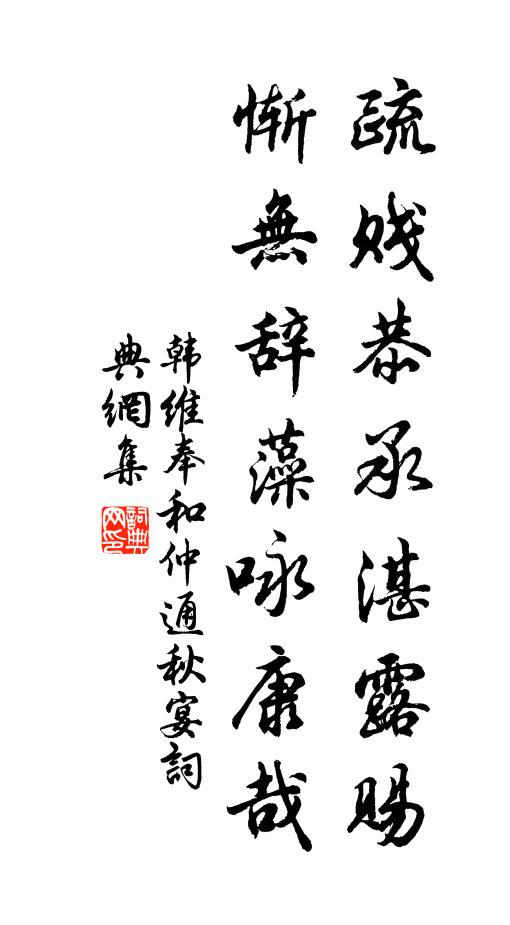 疏贱恭承湛露賜
慚無辞藻咏康哉
韩維奉和仲通秋宴詞
典網集
詞典网印